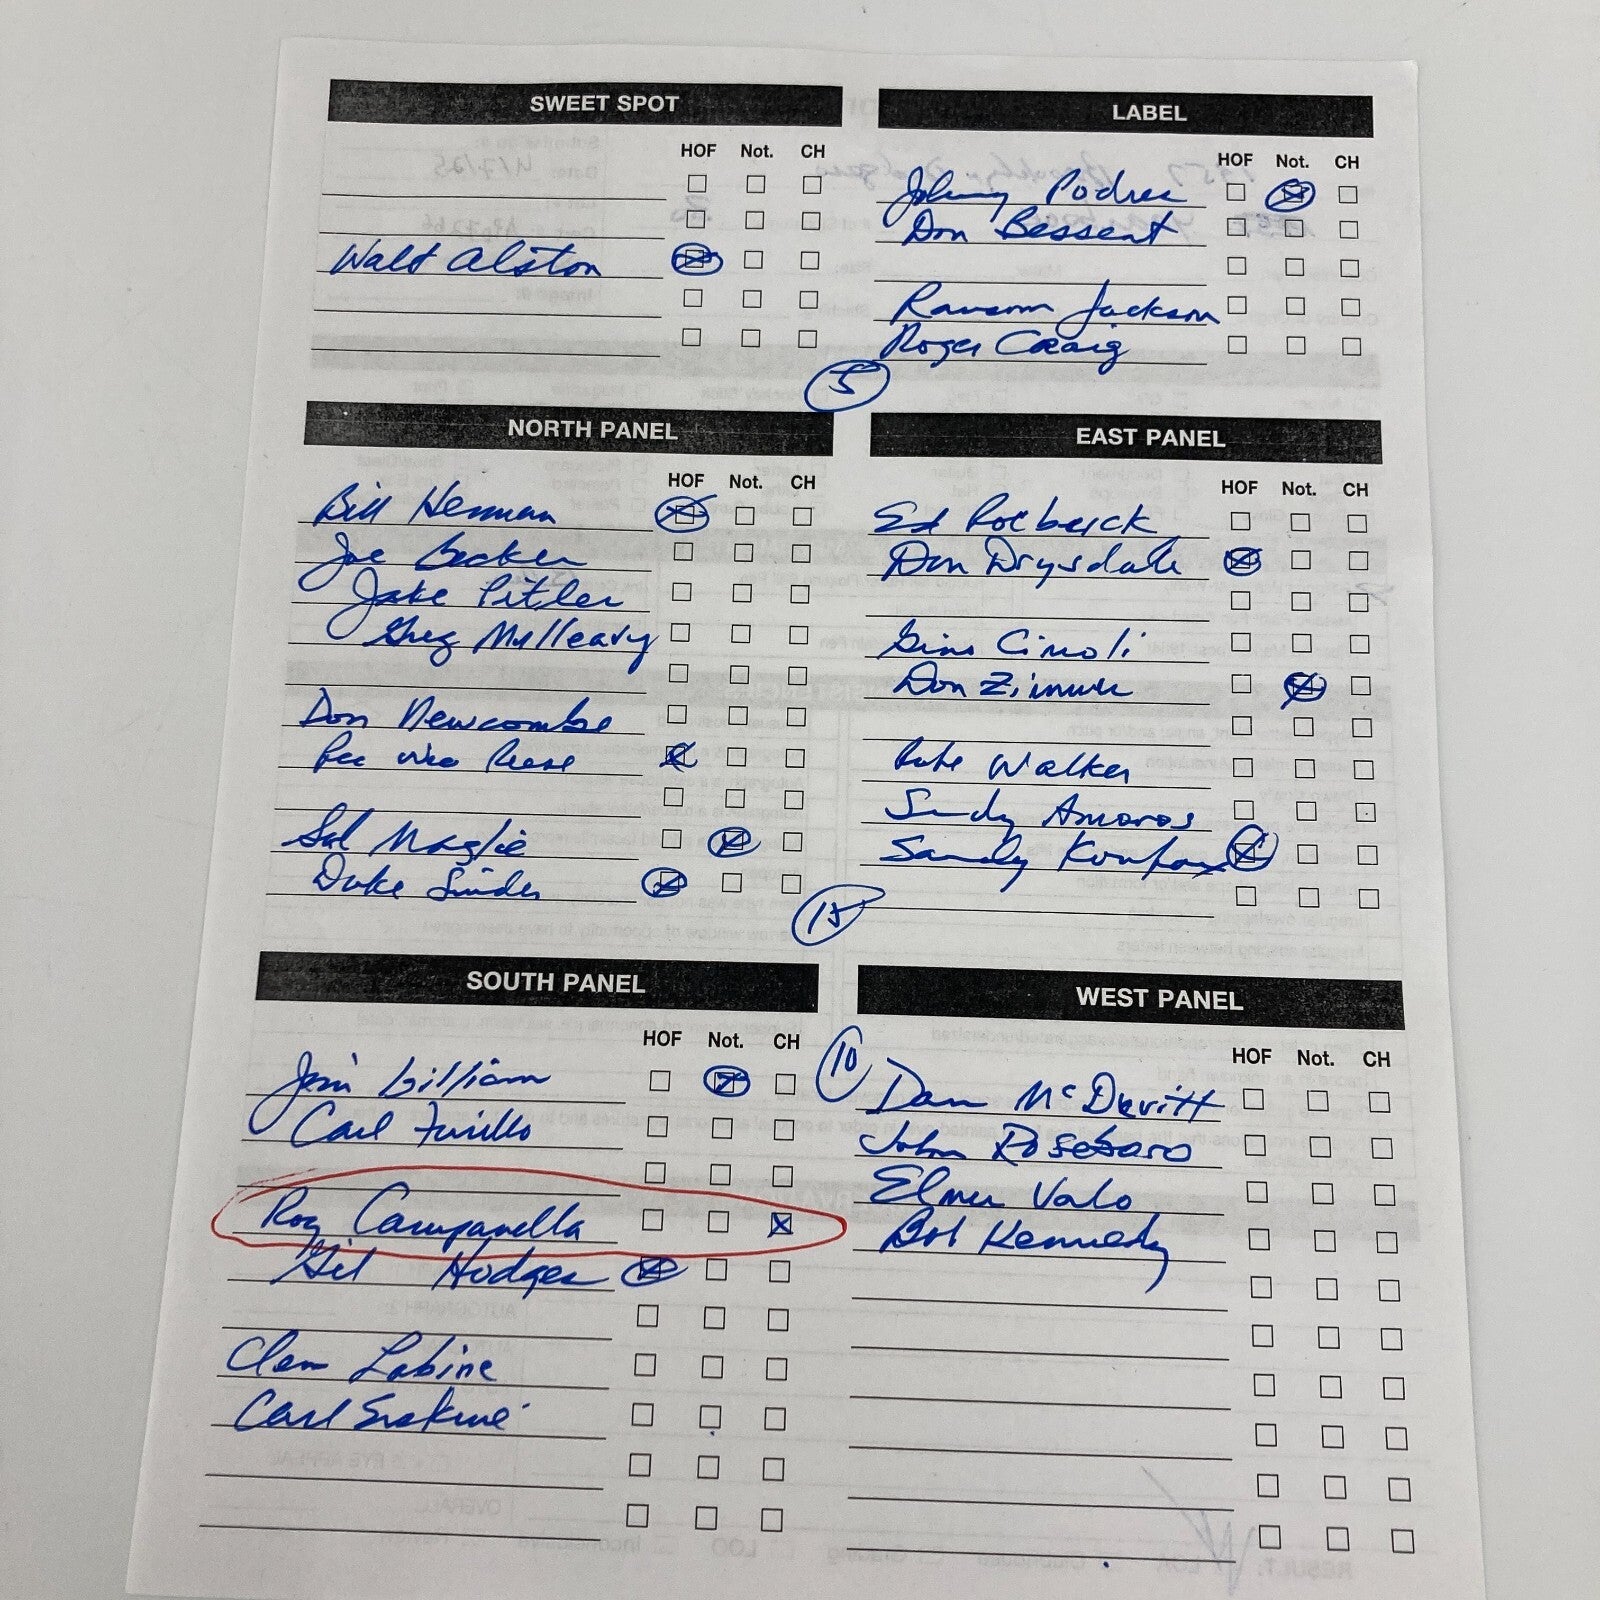 SWEET SPOT
HOF Not. CH
Walt Alston
LABEL
HOF Not. CH
Johnny Podres
Don Bessent
Ransom Jackson
Roger Craig
5
NORTH PANEL
HOF Not. CH
Bill Herman
Joe Becker
Jake Pitler
Greg Mulleavy
Don Newcombe
Pee Wee Reese
Sal Maglie
Duke Snider
EAST PANEL
HOF Not. CH
Ed Roebuck
Don Drysdale
Gino Cimoli
Don Zimmer
Rube Walker
Sandy Amoros
Sandy Koufax
15
SOUTH PANEL
HOF Not. CH
Jim Gilliam
Carl Furillo
Roy Campanella
Gil Hodges
Clem Labine
Carl Erskine
10
WEST PANEL
HOF Not. CH
Dan McDevitt
John Roseboro
Elmer Valo
Bob Kennedy